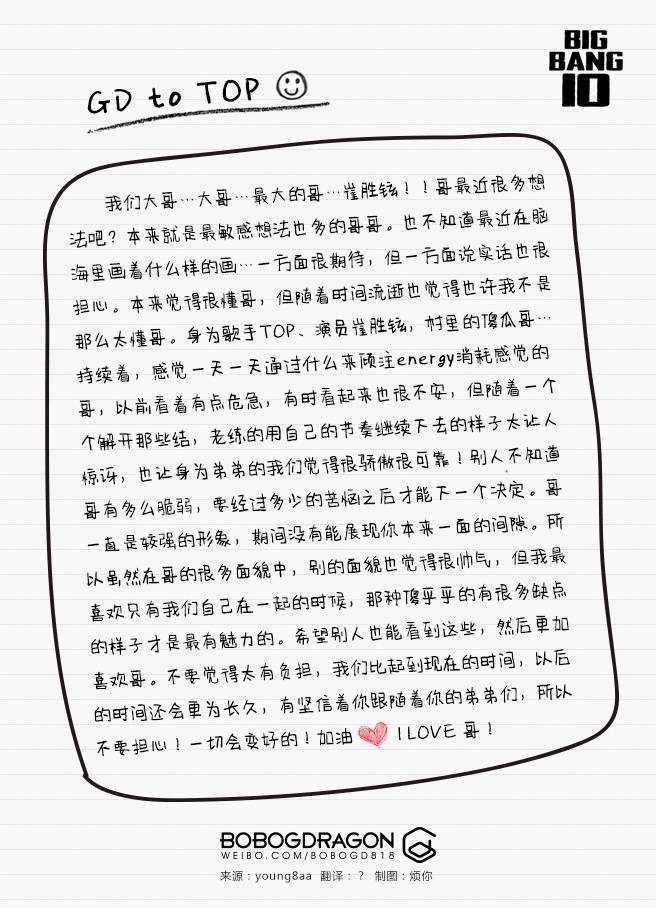 BIG
BANG
10
GD to TOP
我们大哥…大哥…最大的哥…崔胜铉！！哥最近很多想
法吧？本来就是最敏感想法也多的哥哥。也不知道最近在脑
海里画着什么样的画…一方面很期待，但一方面说实话也很
担心。本来觉得很懂哥，但随着时间流逝也觉得也许我不是
那么太懂哥。身为歌手TOP、演员崔胜铉，村里的傻瓜哥…
持续着，感觉一天一天通过什么来倾注energy消耗感觉的
哥，以前看着有点危急，有时看起来也很不安，但随着一个
个解开那些结，老练的用自己的节奏继续下去的样子太让人
惊讶，也让身为弟弟的我们觉得很骄傲很可靠！别人不知道
哥有多么脆弱，要经过多少的苦恼之后才能下一个决定。哥
一直是较强的形象，期间没有能展现你本来一面的间隙。所
以虽然在哥的很多面貌中，别的面貌也觉得很帅气，但我最
喜欢只有我们自己在一起的时候，那种傻乎乎的有很多缺点
的样子才是最有魅力的。希望别人也能看到这些，然后更加
喜欢哥。不要觉得太有负担，我们比起到现在的时间，以后
的时间还会更为长久，有坚信着你跟随着你的弟弟们，所以
不要担心！一切会变好的！加油 I LOVE 哥！
BOBOGDRAGON
WEIBO.COM/BOBOGD818
来源：young8aa 翻译：？ 制图：烦你